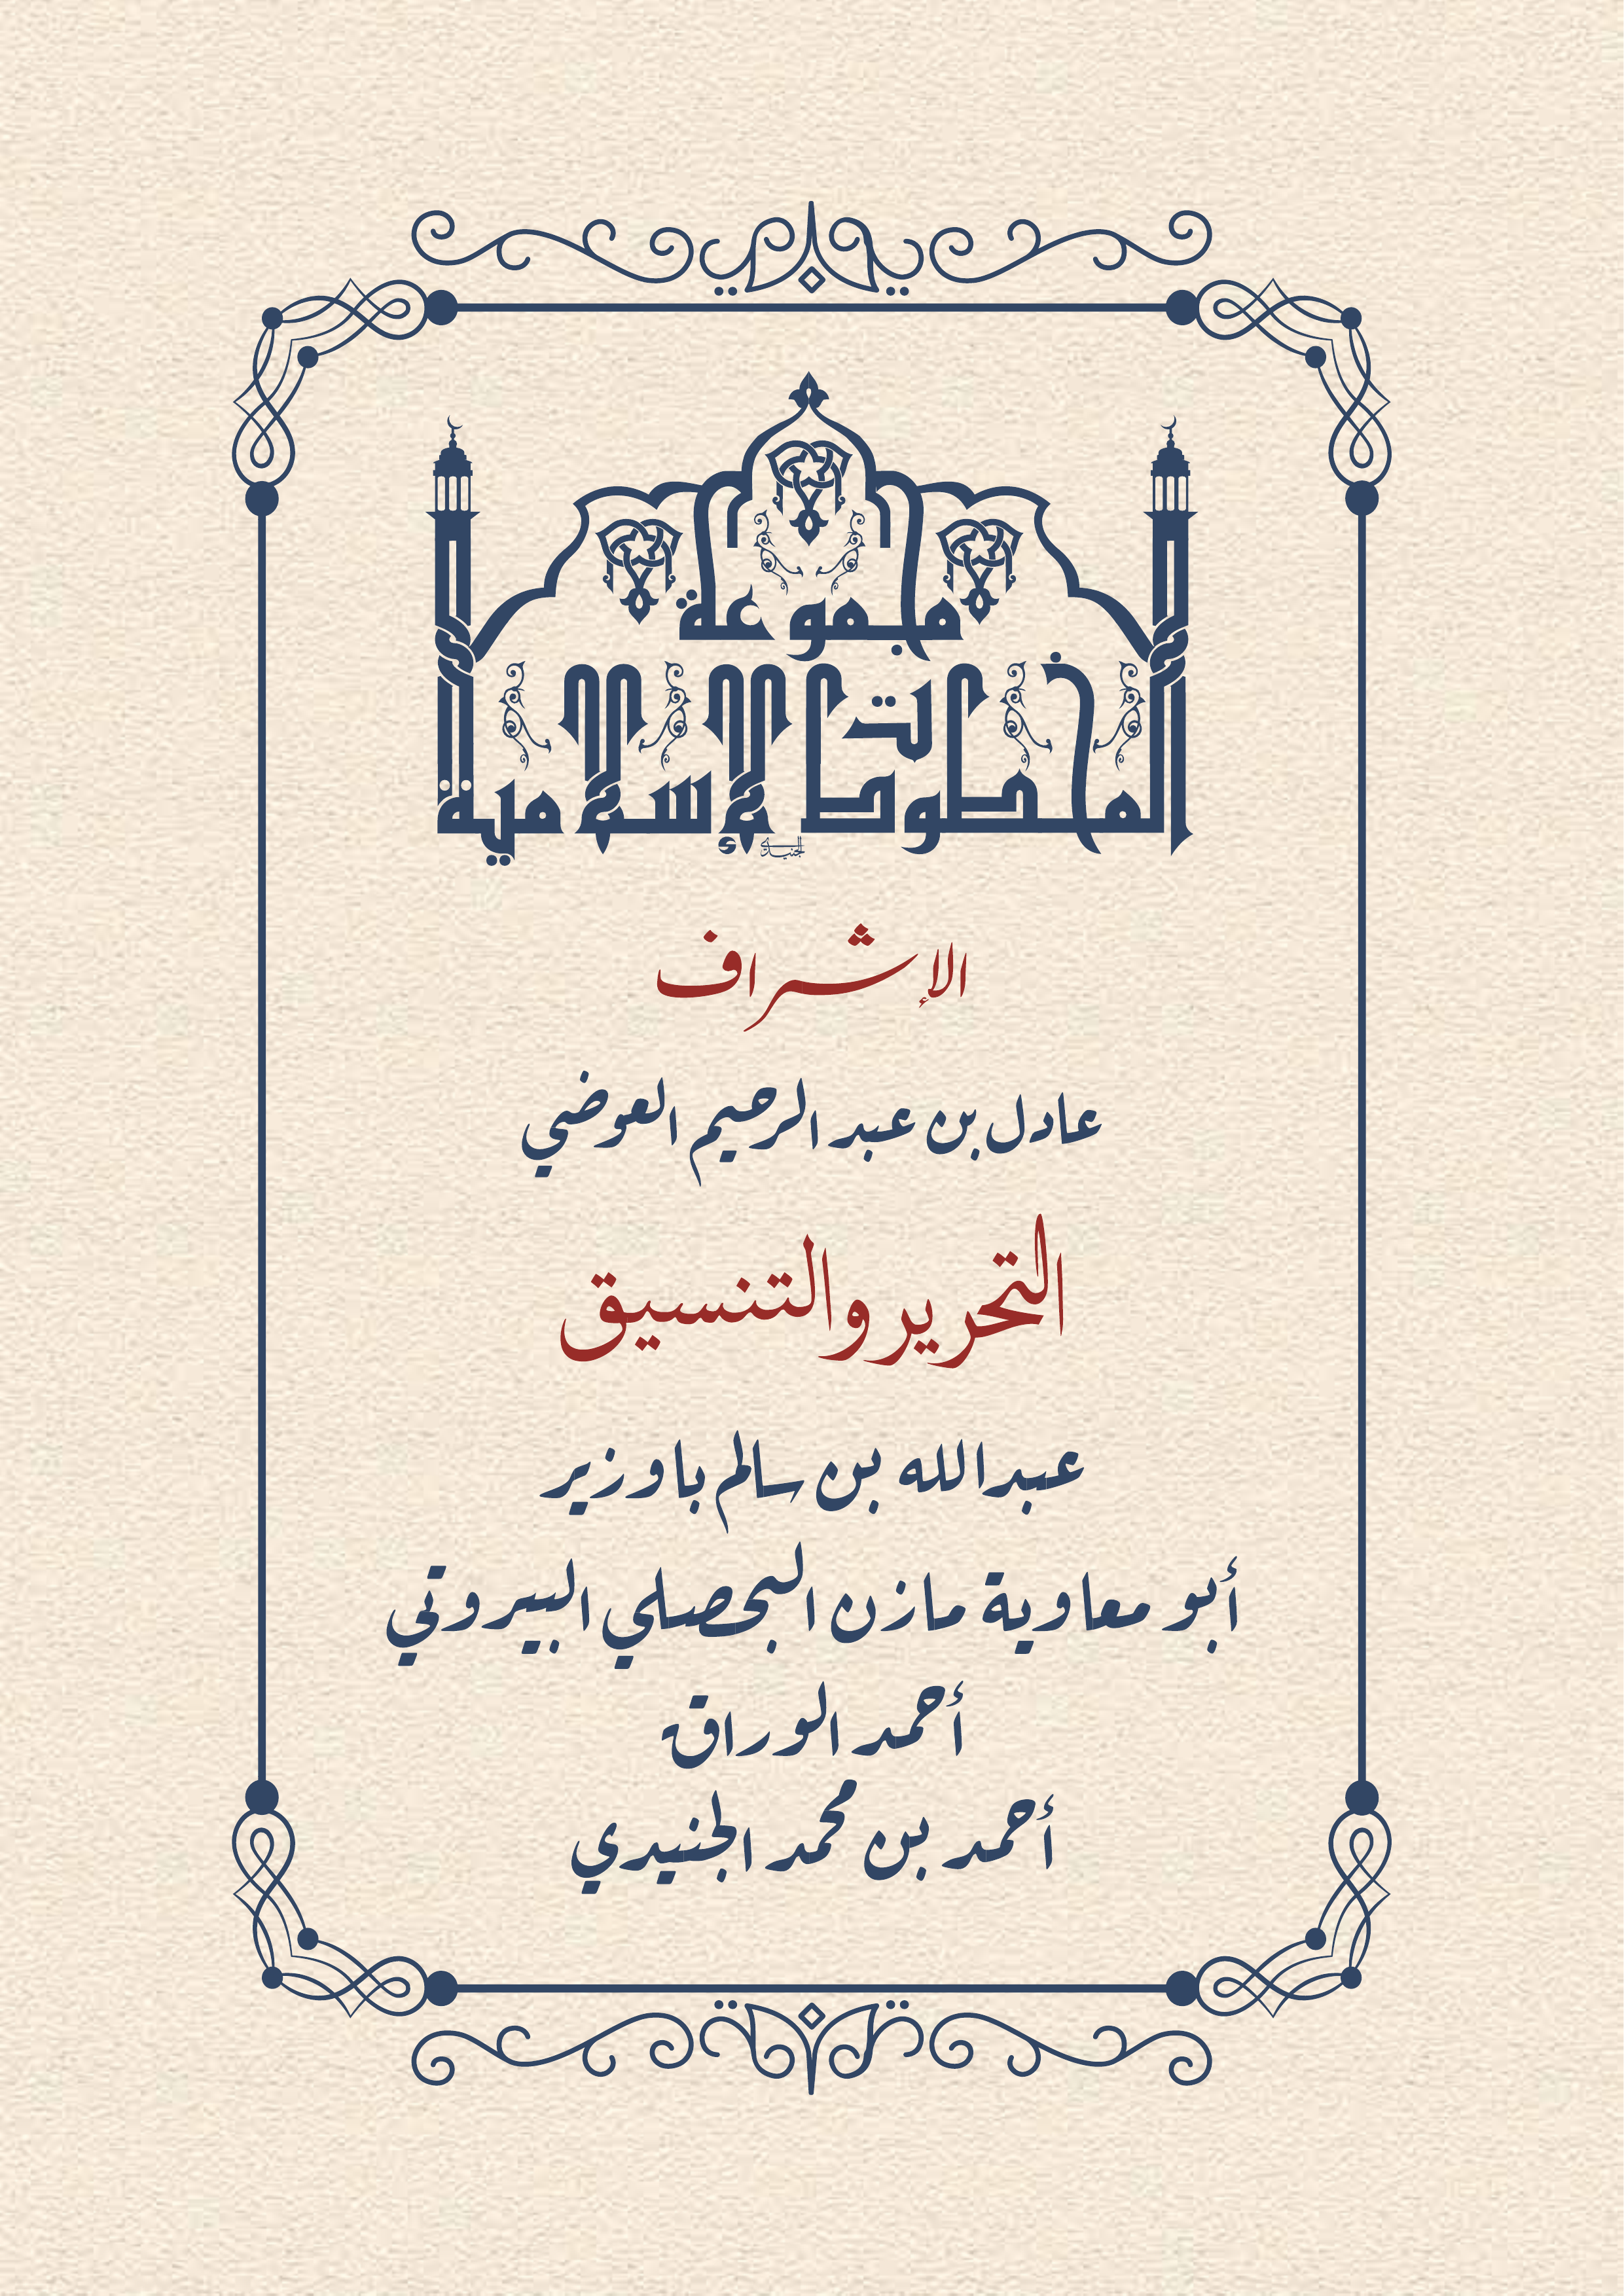 مجموعة
المخطوطات الإسلامية
الجنيدي
الإشراف
عادل بن عبد الرحيم العوضي
التحرير والتنسيق
عبدالله بن سالم باوزير
أبو معاوية مازن البحصلي البيروتي
أحمد الوراق
أحمد بن محمد الجنيدي